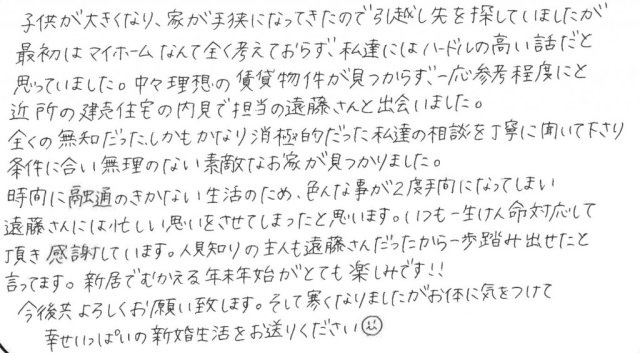 子供が大きくなり、家が手狭になってきたので引越し先を探していましたが
最初はマイホームなんて全く考えておらず、私達にはハードルの高い話だと
思っていました。中々理想の賃貸物件が見つからず、一応参考程度にと
近所の建売住宅の内見で担当の遠藤さんと出会いました。
全くの無知だった、しかもかなり消極的だった私達の相談を丁寧に聞いて下さり
条件に合い無理のない素敵なお家が見つかりました。
時間に融通のきかない生活のため、色んな事が2度手間になってしまい
遠藤さんには忙しい思いをさせてしまったと思います。いつも一生けん命対応して
頂き感謝しています。人見知りの主人も遠藤さんだったから一歩踏み出せたと
言ってます。新居でむかえる年末年始がとても楽しみです!!
今後共よろしくお願い致します。そして寒くなりましたがお体に気をつけて
幸せいっぱいの新婚生活をお送りください☺